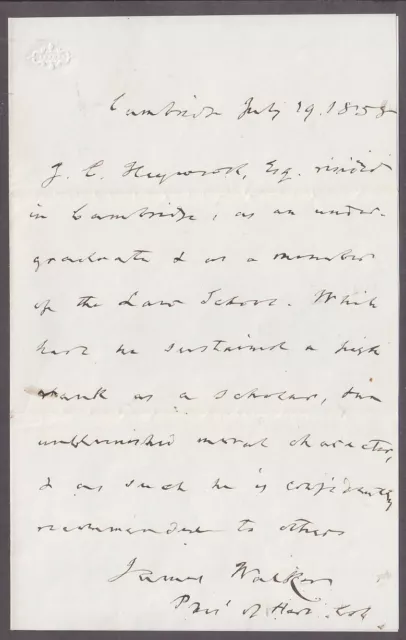 Cambridge July 19. 1858
J. C. Heywood, Esq. resided
in Cambridge, as an under-
graduate & as a member
of the Law School. While
here he sustained a high
rank as a scholar, &
unblemished moral character,
& as such he is confidently
recommended to others
James Walker
Pres' of Harv. Col.